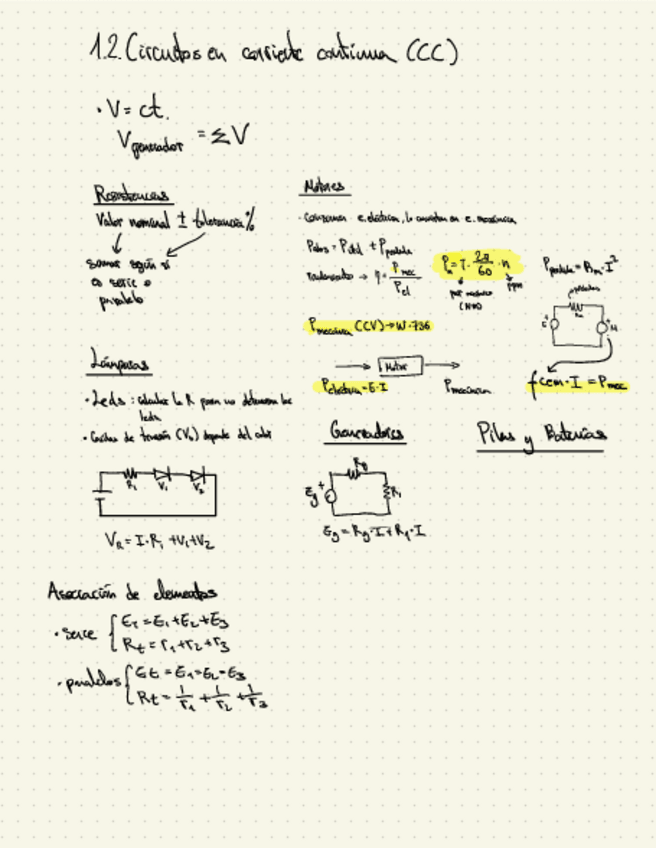 1.2. Circuitos en corriente continua (CC)
· V = ct.
V generador = ΣV
Resistencias
Valor nominal ± tolerancia %
sumar según si
es serie o
paralelo
Motores
· Consumen e. eléctrica, la convierten en e. mecánica
Pabs = Pútil + Pperdida
Rendimiento → η = Pmec / Pel
Pu = T · 2π/60 · n
par motor (N·m)
rpm
Pperdida = Rm · I²
Pmecánica (CV) → W · 736
Motor
Peléctrica = E · I
Pmecánica
fcem · I = Pmec
Lámparas
· Leds : calcular la R para no deteriorar los
leds
· Caídas de tensión (Vo) depende del color
R1 V1 V2
VR = I · R1 + V1 + V2
Generadores
Rg
Eg + R1
Eg = Rg · I + R1 · I
Pilas y Baterías
Asociación de elementos
· serie { ET = E1 + E2 + E3
Rt = r1 + r2 + r3
· paralelos { Et = E1 = E2 = E3
Rt = 1/r1 + 1/r2 + 1/r3